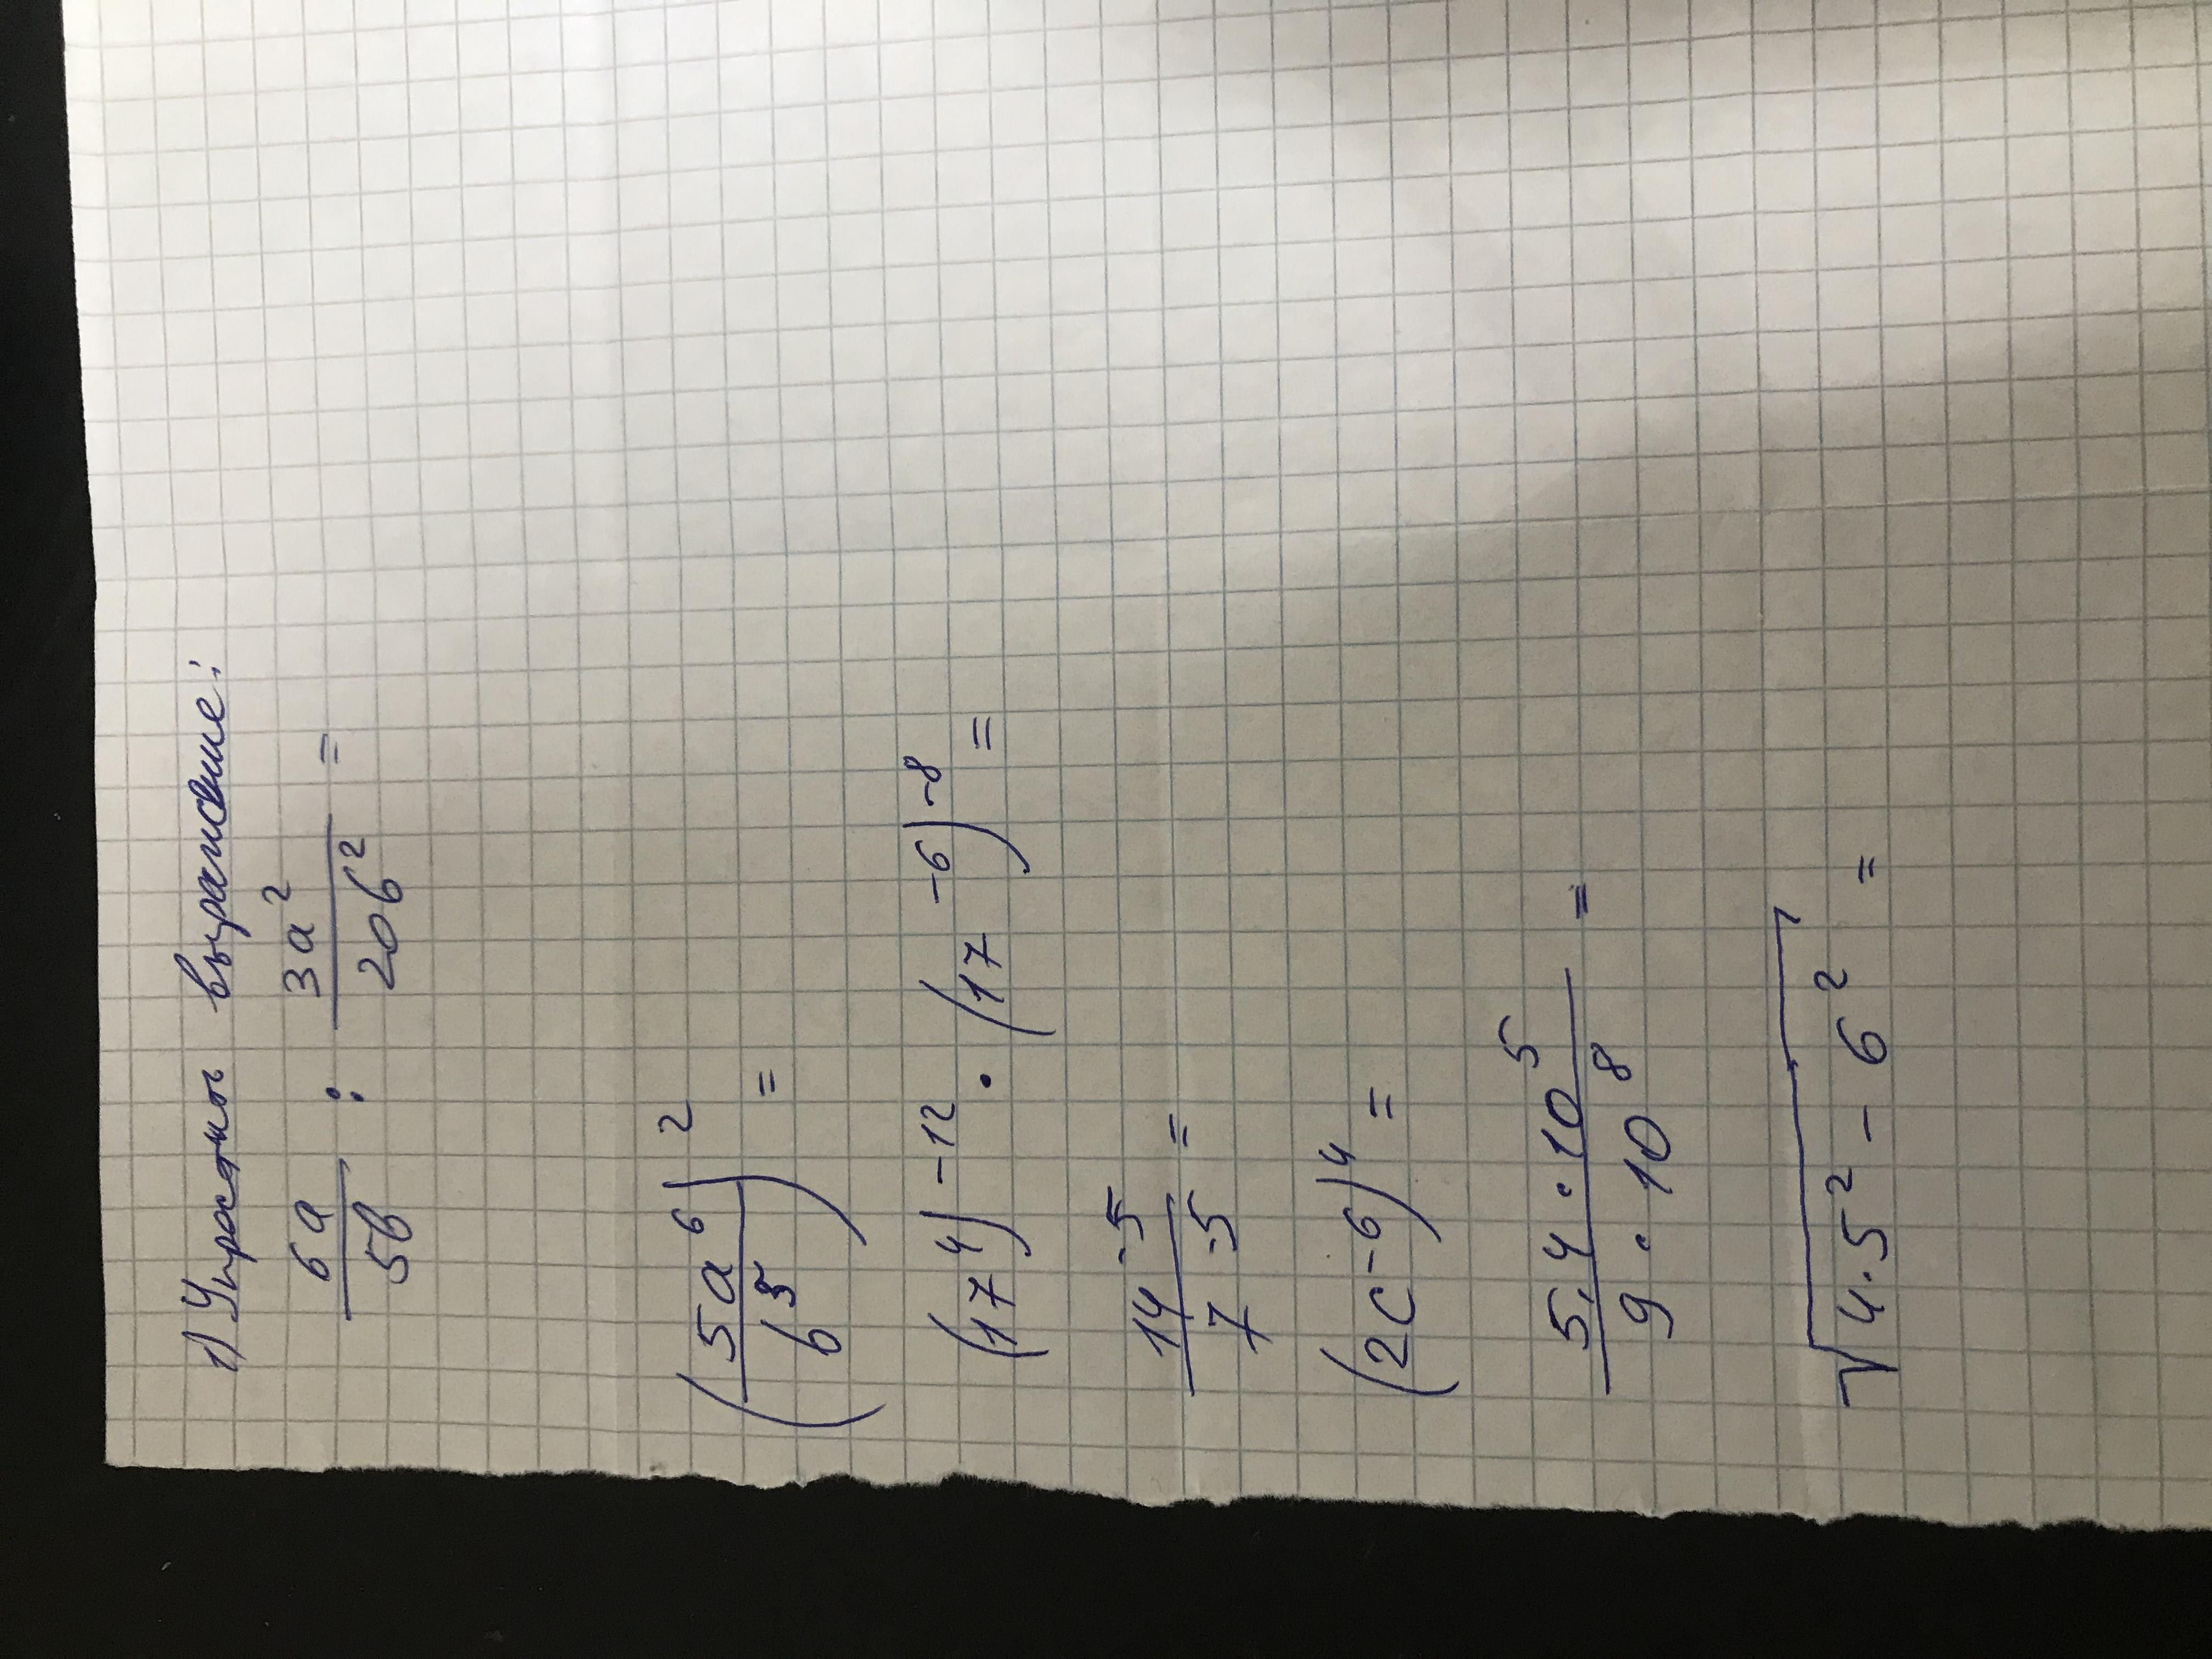 1) Упростить выражение:
6a/5b : 3a²/20b² =
(5a⁶/b⁵)² =
(17⁴)⁻¹² · (17⁻⁶)⁻⁸ =
14⁻⁵/7⁻⁵ =
(2c⁻⁶)⁴ =
5,4·10⁵/9·10⁸ =
√4·5² - 6² =